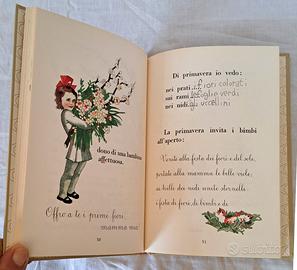 dono di una bambina
affettuosa.
Offro a te i primi fiori,
mamma mia
XI
Di primavera io vedo:
nei prati i fiori colorati
sui rami le foglie verdi
nei nidi gli uccellini
La primavera invita i bimbi
all'aperto:
Venite alla festa dei fiori e del sole,
portate alla mamma le belle viole,
festa di fiori, di bimbi e di
subito.it